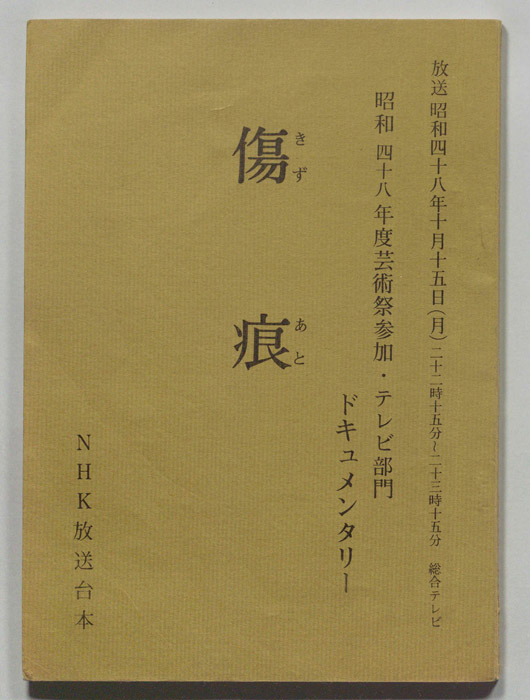 放送 昭和四十八年十月十五日(月)二十二時十五分~二十三時十五分 総合テレビ
昭和四十八年度芸術祭参加・テレビ部門
ドキュメンタリー
きず あと
傷痕
NHK放送台本